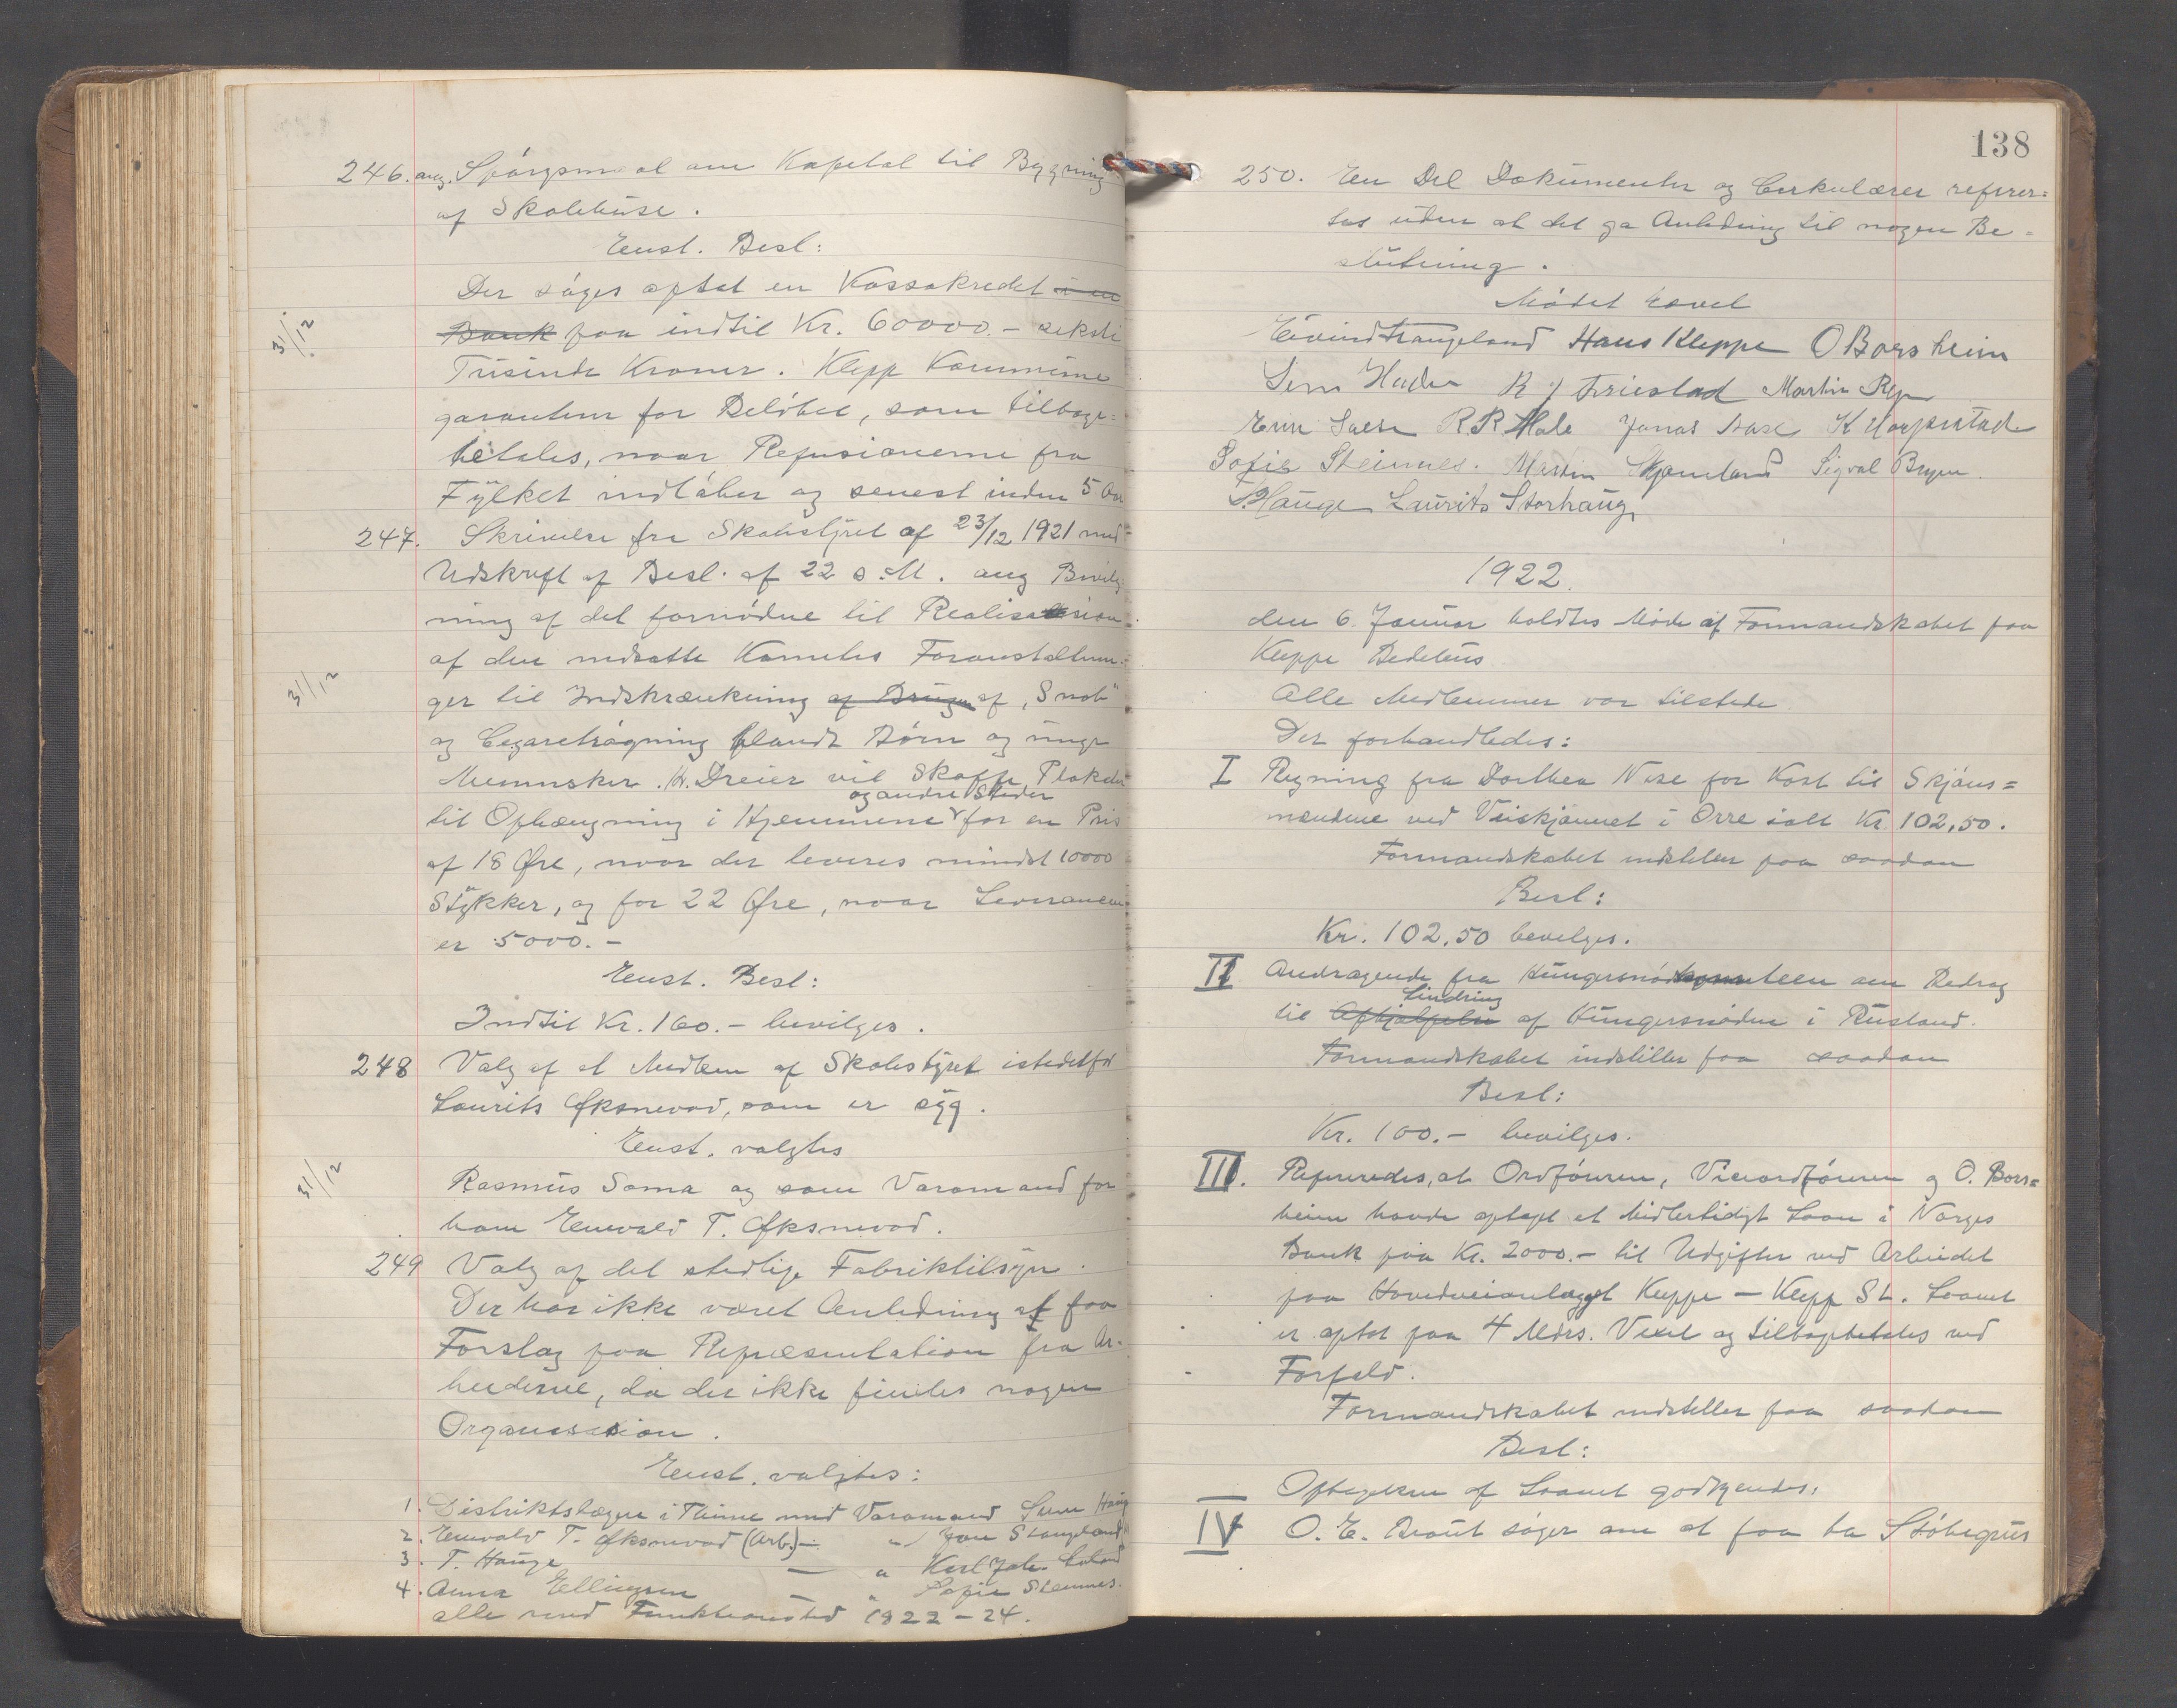 246. ang. Spórgsmaal om Kapital til Bygning
af Skolehuse.
Enst. Besl:
Der søges optat en Kassakredit i en
Bank paa indtil Kr. 60000.- seksti
31/12
Tusinde Kroner. Klepp Kommune
garanterer for Beløbet, som tilbage=
betales, naar Refusionerne fra
Fylket indløber og senest inden 5 Aar
247. Skrivelse fra Skolestyret af 23/12 1921 med
Udskrift af Besl. af 22 s.M. ang Bevilg-
ning af det fornødne til Realisation
af den nedsatte Komites Foranstaltnin-
31/12
ger til Indskrænkning af Brugen af "Snob"
og Cigaretrøgning blandt Børn og unge
Mennesker. H. Dreier vil skaffe Plakater
og andre Steder
til Ophængning i Hjemmene for en Pris
af 18 Øre, naar der leveres mindst 10000
Stykker, og for 22 Øre, naar Leverancen
er 5000.-
Enst. Besl:
Indtil Kr. 160.- bevilges.
248 Valg af et Medlem af Skolestyret istedetfor
Laurits Øksnevad, som er syg.
Enst. valgtes
31/12
Rasmus Soma og som Varamand for
ham Enevald T. Øksnevad.
249 Valg af det stedlige Fabriktilsyn.
Der har ikke været Anledning at faa
Forslag paa Repræsentation fra Ar-
beiderne, da der ikke findes nogen
Organisasion.
Enst. valgtes:
1. Distriktslægen i Thime med Varamand Sem Haug
2. Enevald T. Øksnevad (Arb.) — " Jon Stangeland
3. T. Hauge — " Karl Joh.
4. Anna Ellingsen — " Sofie Steinnes.
alle med Funktionstid 1922-24.
138
250. En Del Dokumenter og Cirkulærer referer=
tes uden at det ga Anledning til nogen Be=
slutning.
Mødet hævet
Eivind Frangeland Hans Kleppe O Borsheim
R J Friestad Martin
R.R. Hole Jonas Aase K Horpestad
Sofie Steinnes. Martin Skjæveland Sigval Bryne
T Hauge Laurits Storhaug
1922.
den 6. Januar holdtes Møde af Formandskabet paa
Kleppe Bedehus
Alle Medlemmer var tilstede
Der forhandledes:
I Regning fra Dorthea Nese for Kost til Skjøns=
mændene ved Veiskjønnet i Orre ialt Kr. 102,50.
Formandskabet indstiller paa saadan
Besl:
Kr. 102,50 bevilges.
II Andragende fra Hungersnødskomiteen om Bidrag
Lindring
til Afhjælpelse af Hungersnøden i Rusland.
Formandskabet indstiller paa saadan
Besl:
Kr. 100.- bevilges.
III. Refereredes, at Ordføreren, Viceordføreren og O. Bors=
heim havde optaget et Midlertidigt Laan i Norges
Bank paa Kr. 2000.- til Udgifter ved Arbeidet
paa Hovedveianlægget Kleppe - Klepp St. Laanet
er optat paa 4 Mdrs. Vexel og tilbagebetales ved
Forfald.
Formandskabet indstiller paa saadan
Besl:
Optagelsen af Laanet godkjendes.
IV O. E. Braut søger om at faa ta Støbegrus